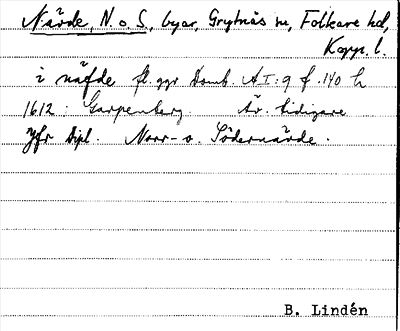 Närde, N. o S., byar, Grytnäs sn, Folkare hd,
Kopp. l.
i näfde fl. ggr Domb. AI:9 f. 140 h
1612: Garpenberg. Är. tidigare
Jfr Dipl. Norr- o. Södernärde.
B. Lindén